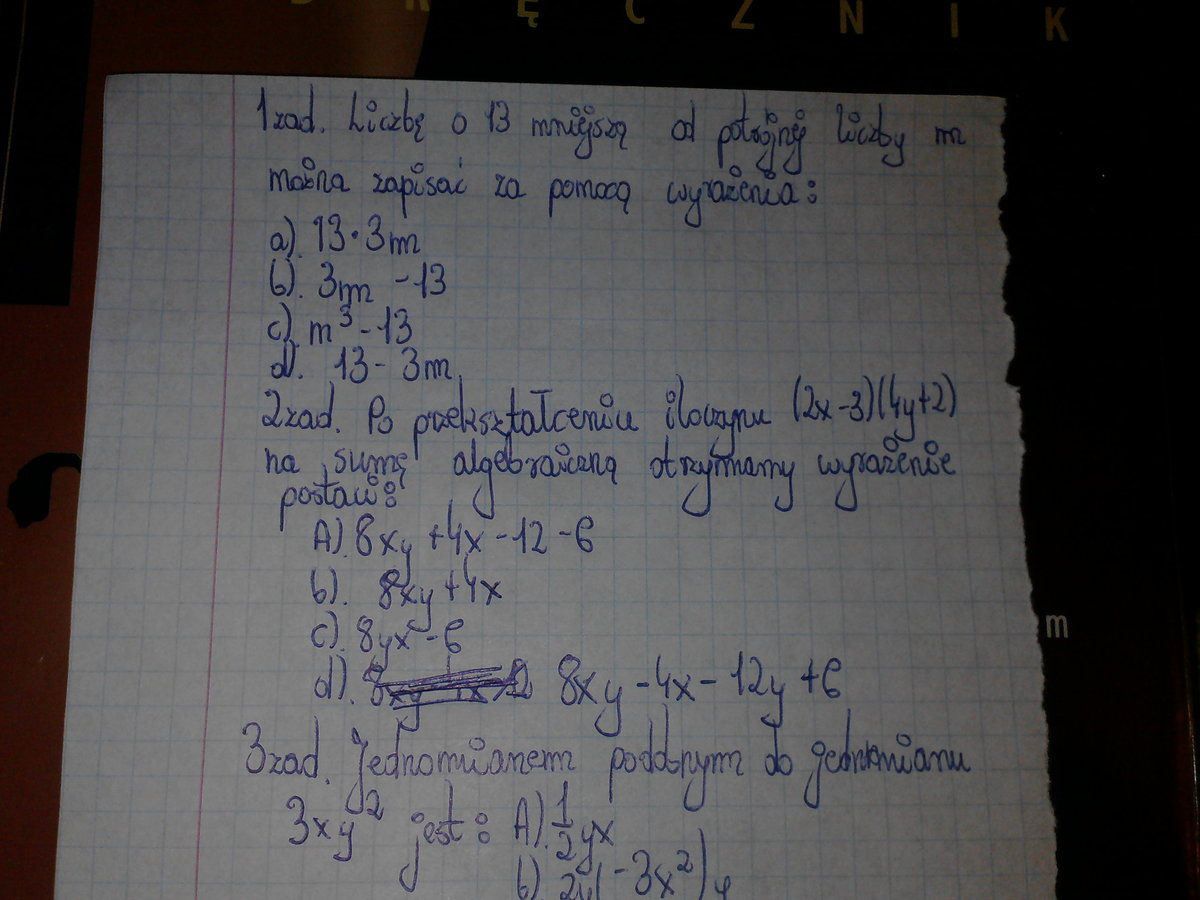 D R Ę C Z N I K
1 zad. Liczbę o 13 mniejszą od potrójnej liczby m
można zapisać za pomocą wyrażenia:
a). 13·3m
b). 3m - 13
c). m³ - 13
d). 13 - 3m
2 zad. Po przekształceniu iloczynu (2x-3)(4y+2)
na sumę algebraiczną otrzymamy wyrażenie
postaci:
A). 8xy + 4x - 12 - 6
b). 8xy + 4x
c). 8yx - 6
d). 8xy - 4x - 12y + 6
m
3 zad. Jednomianem podobnym do jednomianu
3xy² jest: A). 1/2yx
b) 2y(-3x²)y